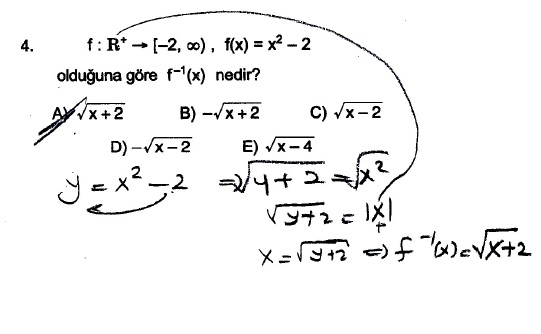 4. f : R⁺ → [−2, ∞) , f(x) = x² − 2
olduğuna göre f⁻¹(x) nedir?
A) √x + 2 B) −√x + 2 C) √x − 2
D) −√x − 2 E) √x − 4
y = x² − 2 ⇒ √y + 2 = √x²
√y+2 = |x|
+
x = √y+2 ⇒ f⁻¹(x) = √x+2